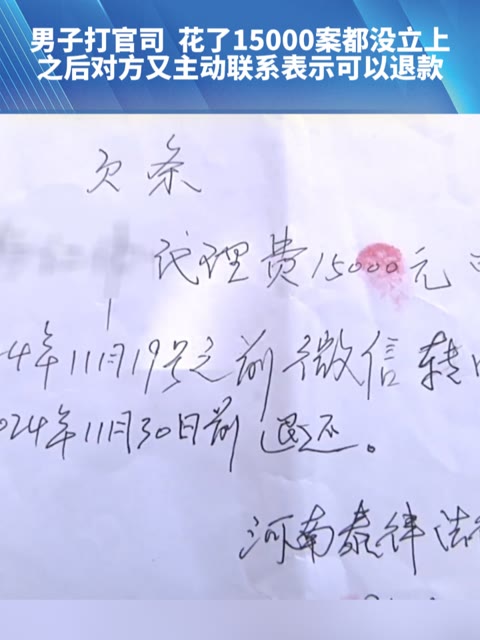 男子打官司 花了15000案都没立上
之后对方又主动联系表示可以退款
欠条
代理费15000元
4年11月19号之前微信转
024年11月30日前退还。
河南泰律法